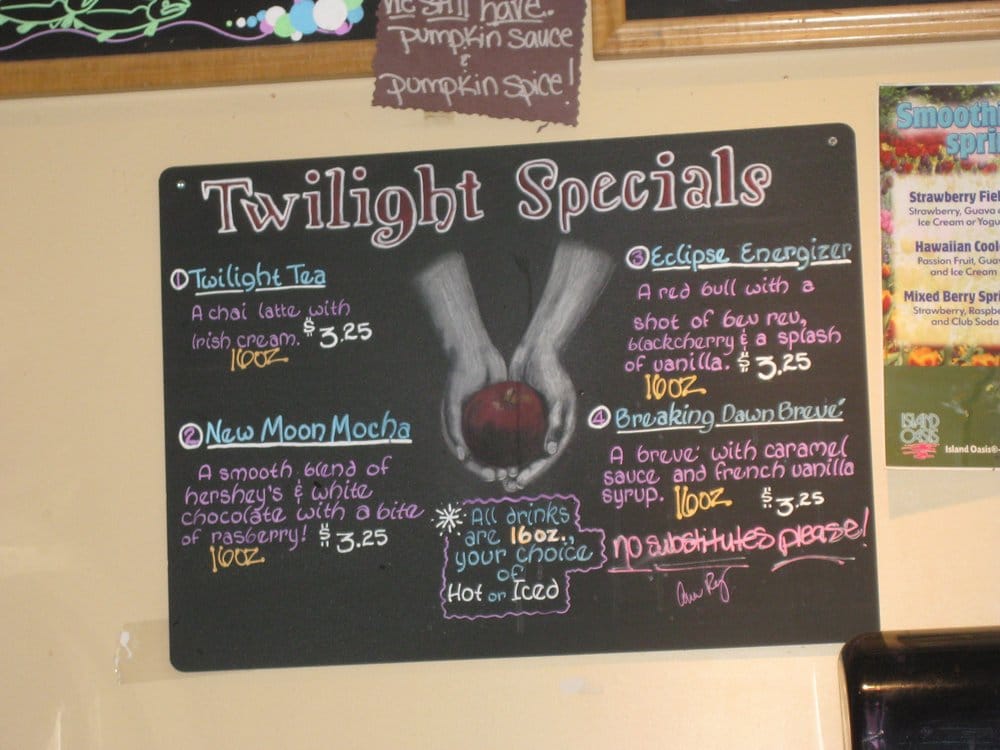 We still have:
pumpkin sauce
&
pumpkin spice!
Twilight Specials
1 Twilight Tea
A chai latte with
Irish cream. $3.25
16oz
2 New Moon Mocha
A smooth blend of
hershey's & white
chocolate with a bite
of rasberry! $3.25
16oz
All drinks
are 16oz.,
your choice
of
Hot or Iced
3 Eclipse Energizer
A red bull with a
shot of bev rev,
blackcherry & a splash
of vanilla. $3.25
16oz
4 Breaking Dawn Breve'
A breve' with caramel
sauce and french vanilla
syrup. 16oz $3.25
no substitutes please!
Smooth
spri
Strawberry Fiel
Strawberry, Guava
Ice Cream or Yogu
Hawaiian Cool
Passion Fruit, Gua
and Ice Cream
Mixed Berry Spri
Strawberry, Raspb
and Club Soda
ISLAND
OASIS
Island Oasis®